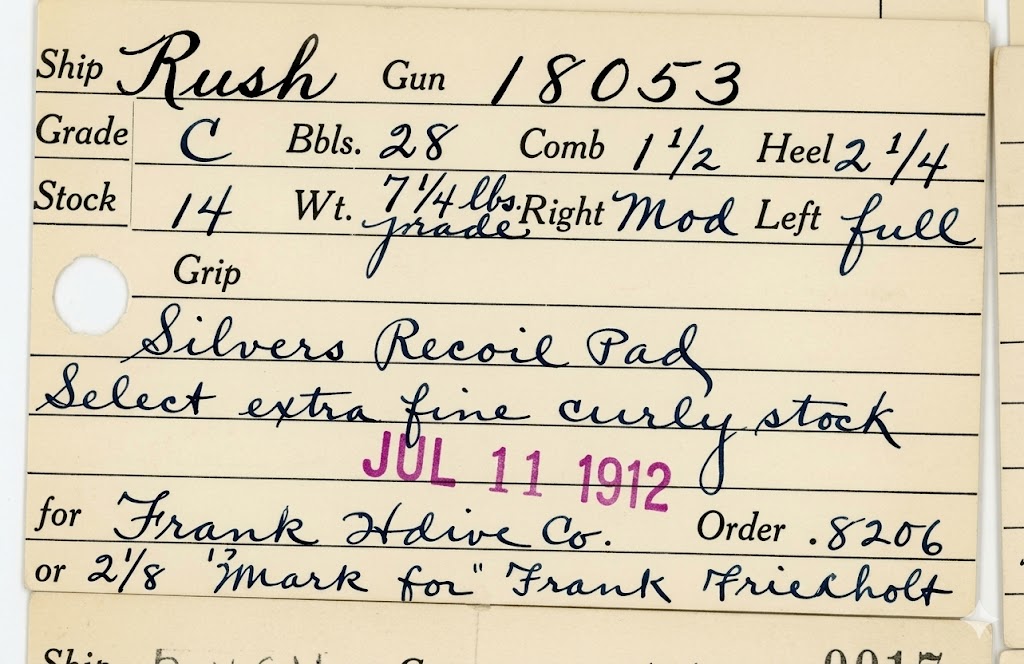 Ship Rush Gun 18053
Grade C Bbls. 28 Comb 1 1/2 Heel 2 1/4
Stock 14 Wt. 7 1/4 lbs. Right Mod Left full
grade
Grip
Silvers Recoil Pad
Select extra fine curly stock
JUL 11 1912
for Frank Hdive Co. Order .8206
or 2 1/8 "Mark for" Frank Friedholt
Ship